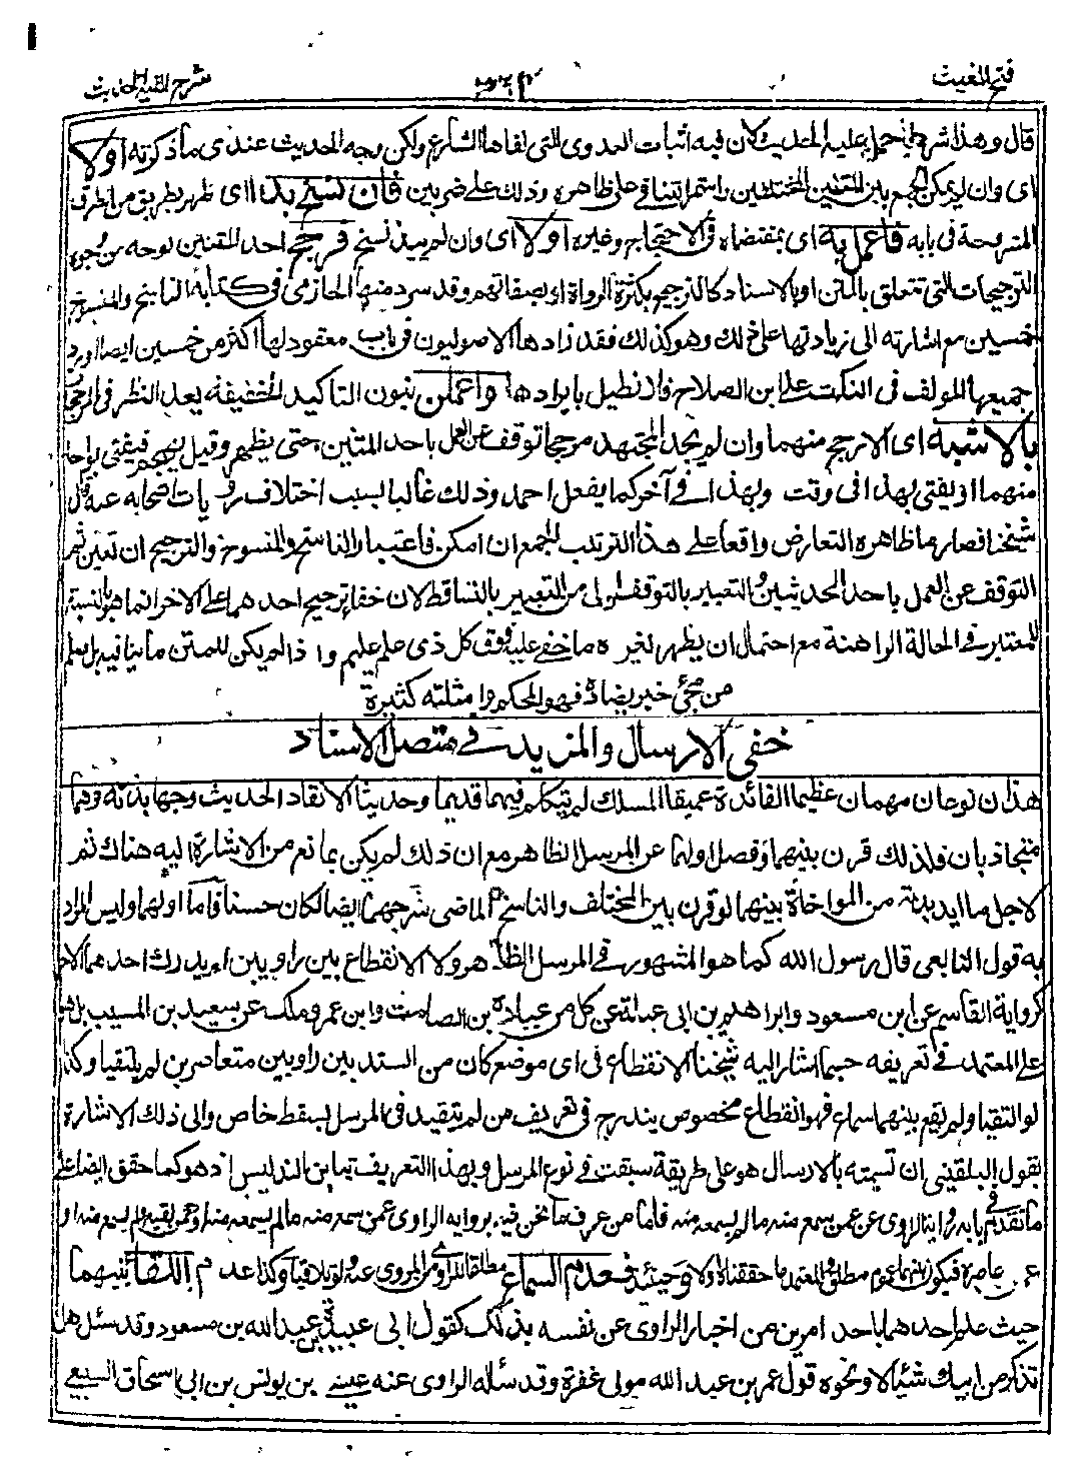 فتح المغيث
شرح الفية الحديث
قال وهذا شرط في حمل عليه الحديث لان فيه اثبات العدوى التي نفاها الشارع ولكن وجه الحديث عندى ما ذكرته اولا
اى وان لم يمكن الجمع بين المتنين المختلفين واستمر التنافى على ظاهره وذلك على ضربين فان نسخ بدا اى ظهر بطريق من الطرق
المشروحة فى بابه فاعمل به اى بمقتضاه فى الاحتجاج وغيره اولا اى وان لم يبد نسخ فرجح احد المتنين بوجه من وجوه
الترجيحات التى تتعلق بالمتن او بالاسناد كالترجيح بكثرة الرواة او بصفاتهم وقد سرد منها الحازمى فى كتابه الناسخ والمنسوخ
خمسين مع اشارته الى زيادتها على ذلك وهو كذلك فقد زادها الاصوليون فى باب معقود لها اكثر من خمسين ايضا اورد
جميعها المولف فى النكت على ابن الصلاح فلا نطيل بايرادها واعملن بنون التاكيد الخفيفة بعد النظر فى المرجحات
بالاشبه اى الارجح منهما وان لم يجد المجتهد مرجحا توقف عن العمل باحد المتنين حتى يظهر وقيل يهجم فيفتى بواحد
منهما او يفتى بهذا فى وقت وبهذا فى آخر كما يفعل احمد وذلك غالبا بسبب اختلاف روايات اصحابه عنه قال
شيخنا فصار ما ظاهره التعارض واقعا على هذا الترتيب الجمع ان امكن فاعتبار الناسخ والمنسوخ والترجيح ان تعين ثم
التوقف عن العمل باحد الحديثين والتعبير بالتوقف اولى من التعبير بالتساقط لان خفا ترجيح احدهما على الاخر انما هو بالنسبة
للمعتبر فى الحالة الراهنة مع احتمال ان يظهر لغيره ما خفى عليه وفوق كل ذى علم عليم واذا لم يكن للمتن ما ينافيه بل سلم
من مجئ خبر يضاده فهو المحكم وامثلته كثيرة
خفى الارسال والمزيد فى متصل الاسناد
هذان نوعان مهمان عظيما الفائدة عميقا المسلك لم يتكلم فيهما قديما وحديثا الا نقاد الحديث وجهابذته وهما
متجاذبان فلذلك قرن بينهما وفصل اولهما عن المرسل الظاهر مع ان ذلك لم يكن بمانع من الاشارة اليه هناك ثم
لاجل ما ابديته من المواخاة بينهما لو قرن بين المختلف والناسخ الماضى شرحهما ايضا لكان حسنا فاما اولهما وليس المراد
به قول التابعى قال رسول الله كما هو المشهور فى المرسل الظاهر ولا الانقطاع بين راويين لم يدرك احدهما الاخر
كرواية القاسم عن ابن مسعود وابراهيم بن ابى عبلة عن كل من عبادة بن الصامت وابن عمر ومالك عن سعيد بن المسيب بل هو
على المعتمد فى تعريفه حسبما اشار اليه شيخنا الانقطاع فى اى موضع كان من السند بين راويين متعاصرين لم يلتقيا وكذا
لو التقيا ولم يقع بينهما سماع فهو انقطاع مخصوص يندرج فى تعريف من لم يتقيد فى المرسل بسقط خاص والى ذلك الاشارة
بقول البلقينى ان تسميته بالارسال هو على طريقة سبقت فى نوع المرسل وبهذا التعريف تباين التدليس اذ هو كما حقق ايضا على
ما تقدم فى بابه رواية الراوى عن من سمع منه ما لم يسمعه منه فاما من عرف ما نحن فيه برواية الراوى عمن سمع منه ما لم يسمعه منه او عمن لقيه ولم يسمع منه او
عمن عاصره فيكون بينهما عموم مطلق والمعتمد ما حققناه اولا وحينئذ فعدم السماع مطلقا للراوى من المروى عنه ولو تلاقيا وكذا عدم اللقا بينهما
حيث علم احدهما باحد امرين من اخبار الراوى عن نفسه بذلك كقول ابى عبيدة بن عبد الله بن مسعود وقد سئل هل
تذكر من ابيك شيئا لا ونحوه قول عمر بن عبد الله مولى غفرة وقد سأله الراوى عنه عيسى بن يونس بن ابى اسحاق السبيعى